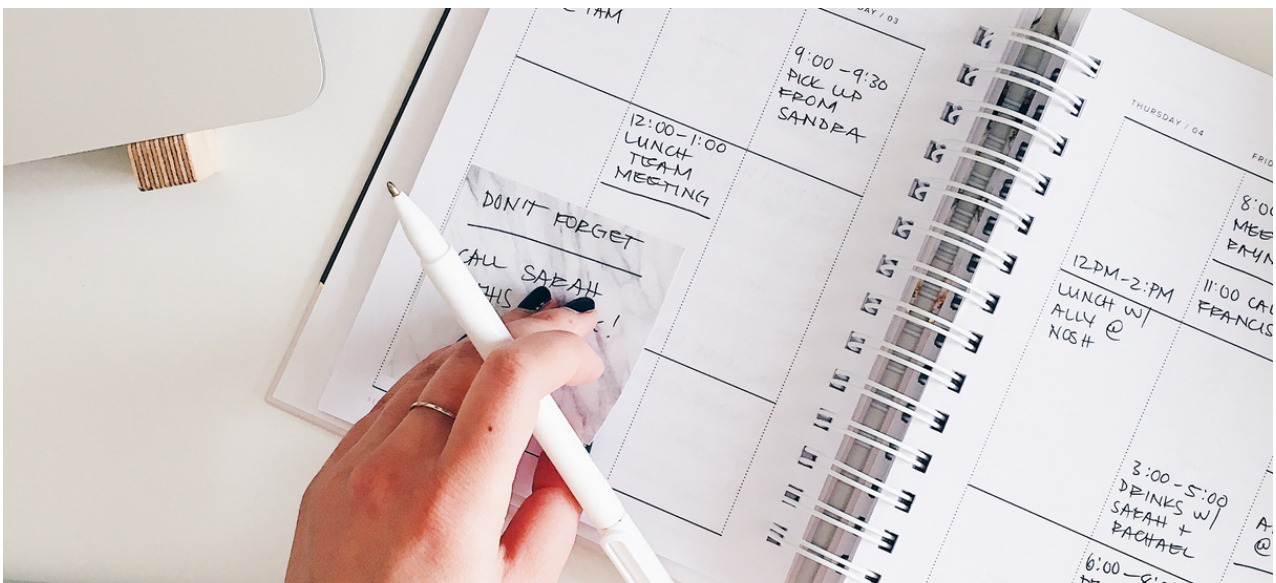 @ 1AM
DAY / 03
9:00 - 9:30
PICK UP
FROM
SANDRA
12:00 - 1:00
LUNCH
TEAM
MEETING
DON'T FORGET
CALL SARAH
THIS
!
THURSDAY / 04
12PM-2:PM
LUNCH W/
ALLY @
NOSH
3:00 - 5:00
DRINKS W/
SARAH +
RACHAEL
6:00 -
8:00
11:00
FRANCIS
@